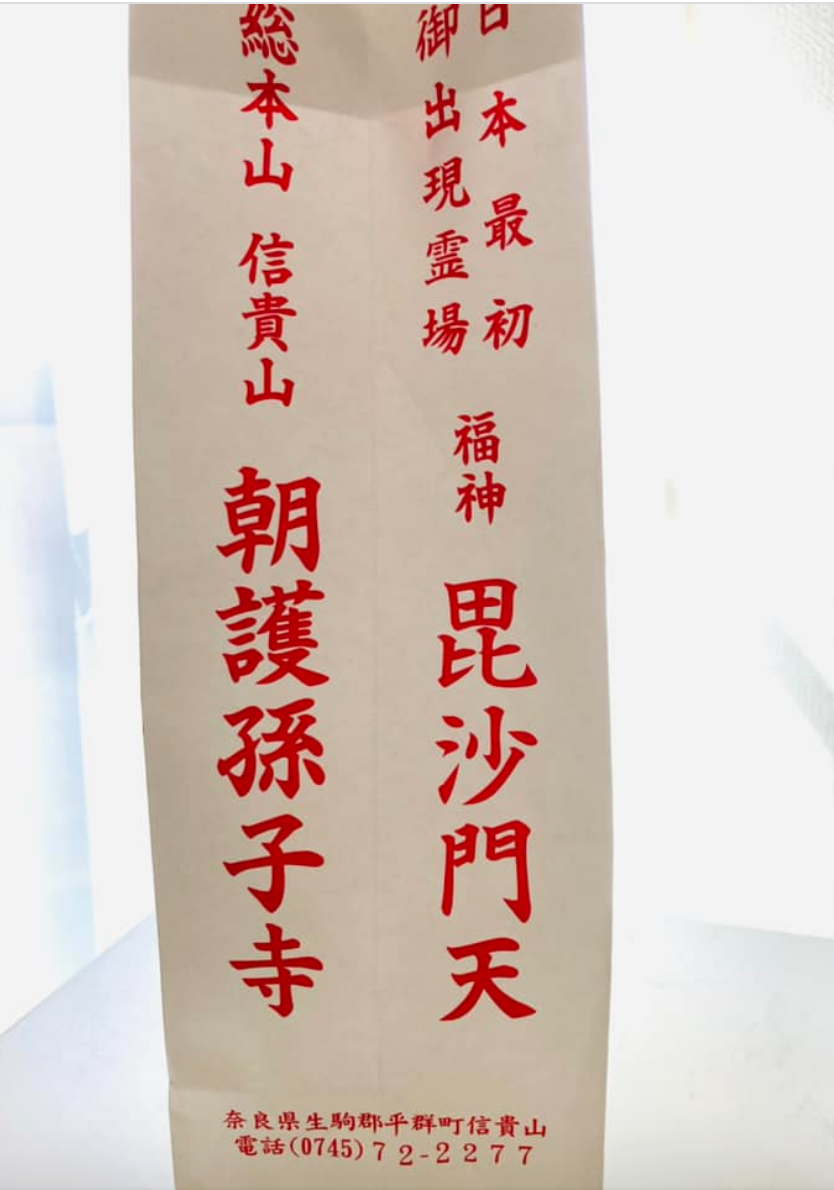 日本最初
御出現霊場
福神 毘沙門天
総本山 信貴山 朝護孫子寺
奈良県生駒郡平群町信貴山
電話(0745)72-2277